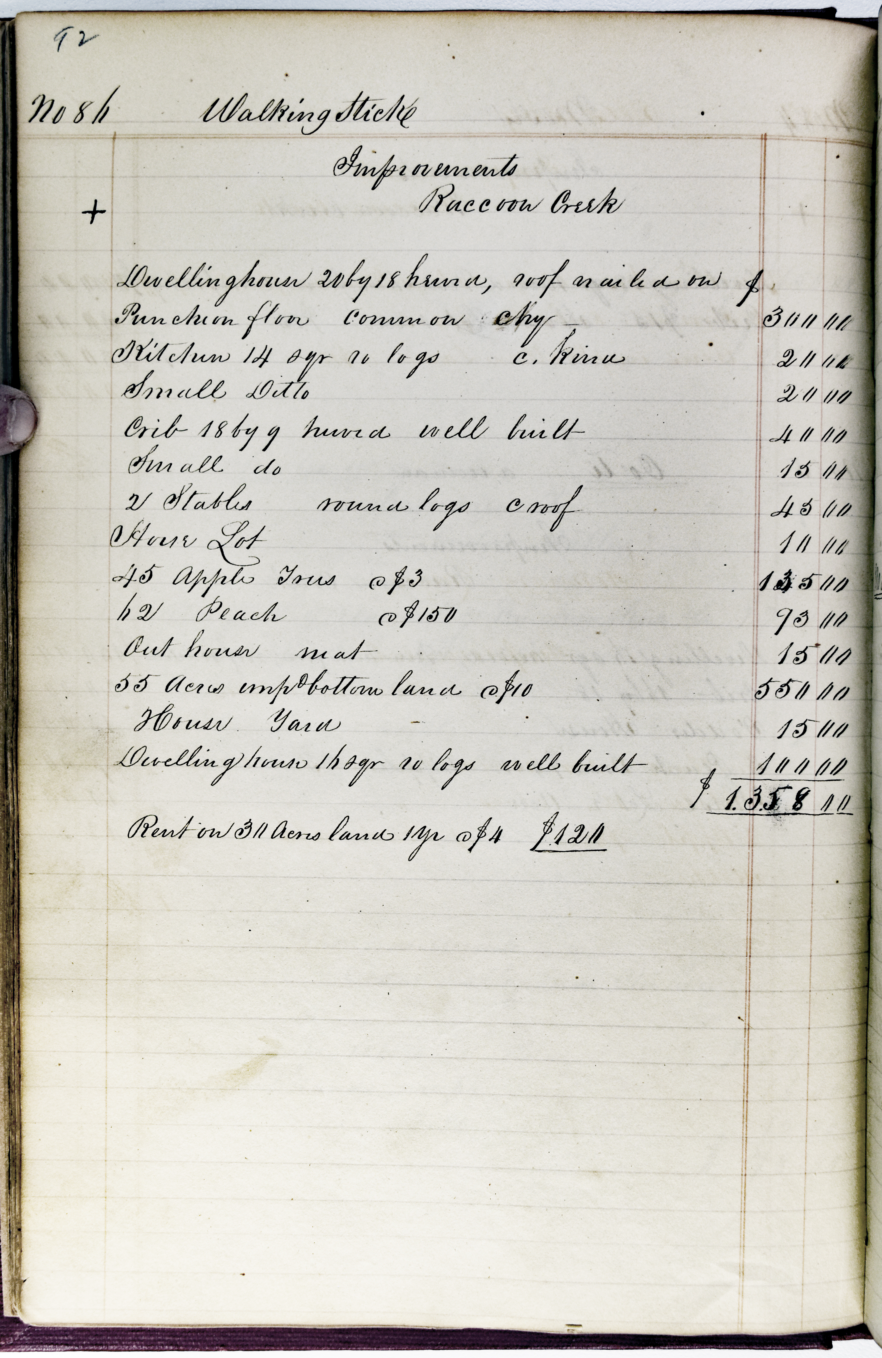 92
No 86 Walking Stick
Improvements
+ Raccoon Creek
Dwelling house 20 by 18 hewed, roof nailed on $
Puncheon floor common chy 300 00
Kitchen 14 sqr ro logs c. kind 20 00
Small Ditto 20 00
Crib 18 by 9 hewed well built 40 00
Small do 15 00
2 Stables round logs c roof 45 00
Horse Lot 10 00
45 Apple Trees @ $3 135 00
62 Peach @ $150 93 00
Out house neat 15 00
55 Acres impd bottom land @ $10 550 00
House Yard 15 00
Dwelling house 16 sqr ro logs well built 100 00
$ 1.358 00
Rent on 30 Acres land 1 yr @ $4 $120